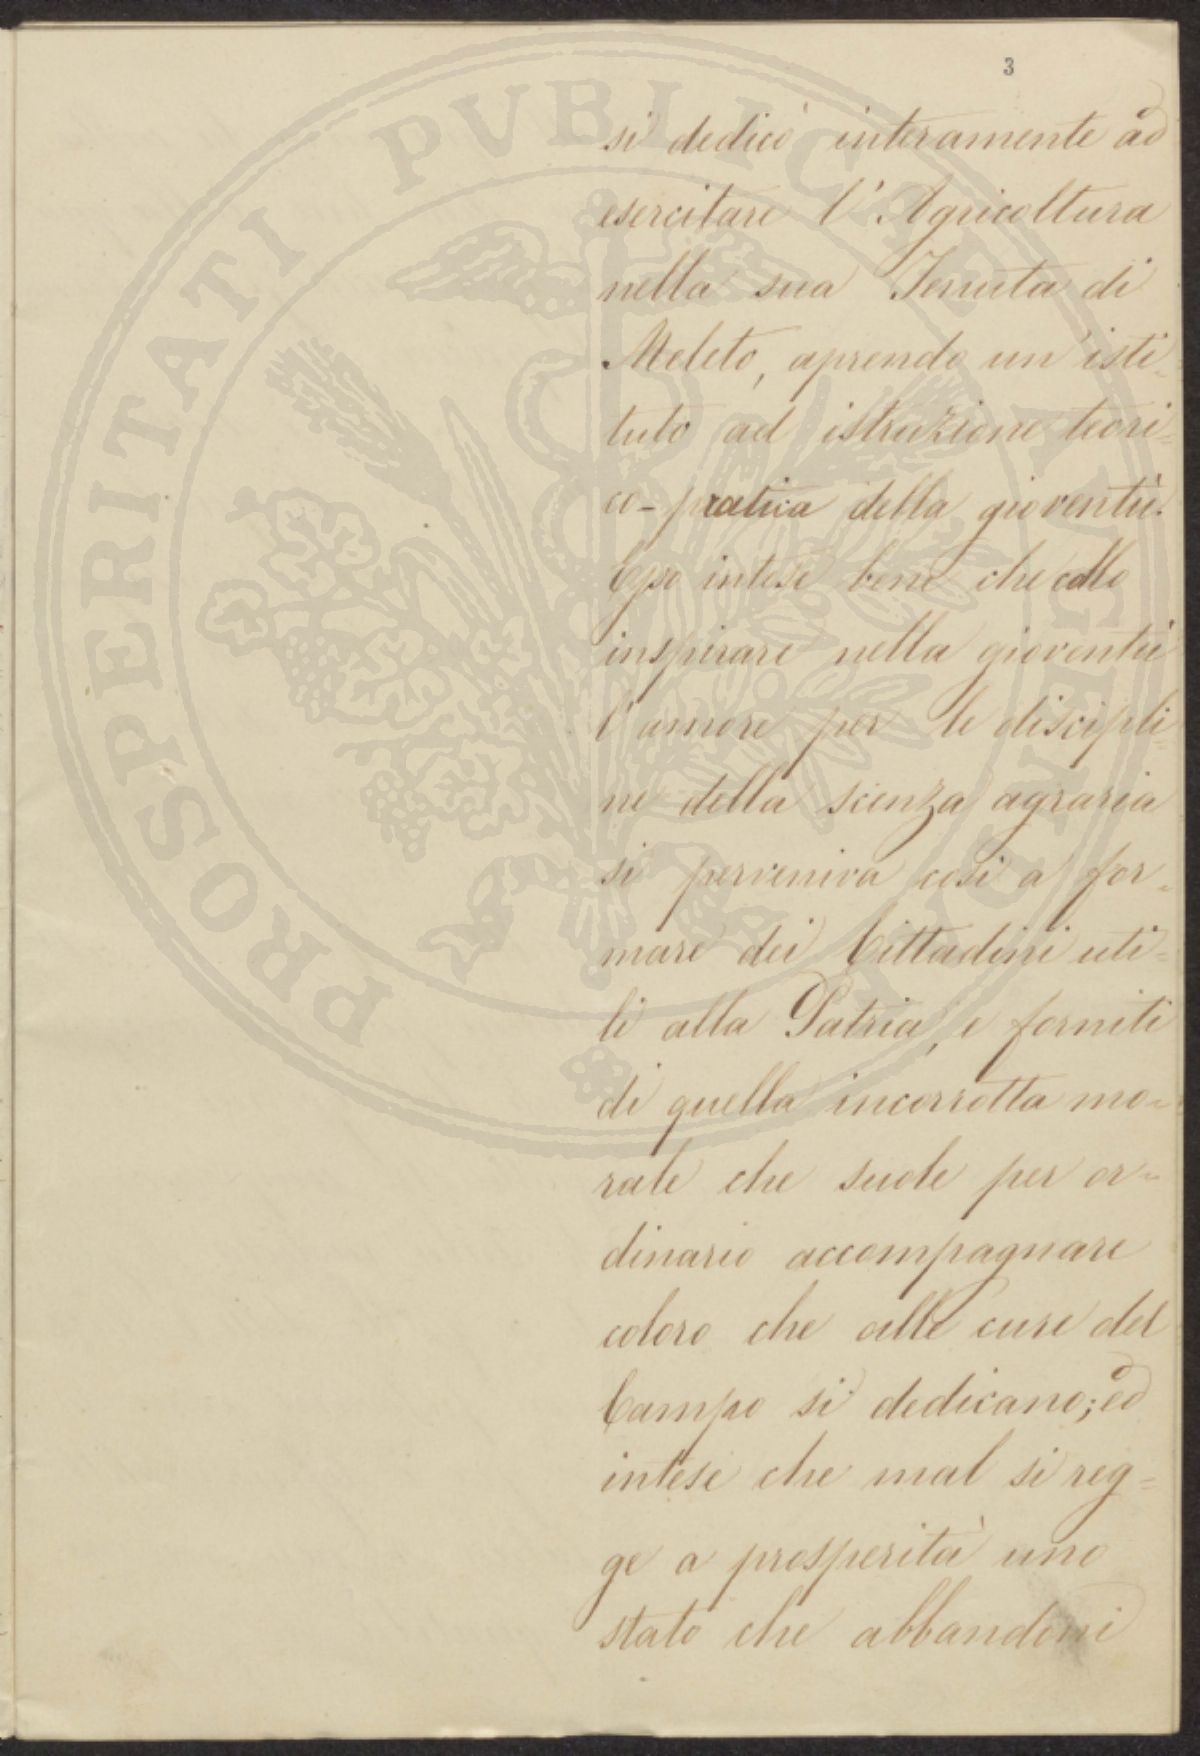 3
si dedicò interamente ad
esercitare l'Agricoltura
nella sua Tenuta di
Meleto, aprendo un'isti=
tuto ad istruzione teori=
co-pratica della gioventù.
Esso intese bene che collo
inspirare nella gioventù
l'amore per le discipli=
ne della scienza agraria
si perveniva così a for=
mare dei Cittadini uti=
li alla Patria, e forniti
di quella incorrotta mo=
rale che suole per or=
dinario accompagnare
coloro che alle cure del
Campo si dedicano; ed
intese che mal si reg=
ge a prosperità uno
stato che abbandoni
PROSPERITATI PVBLICAE AVGENDAE